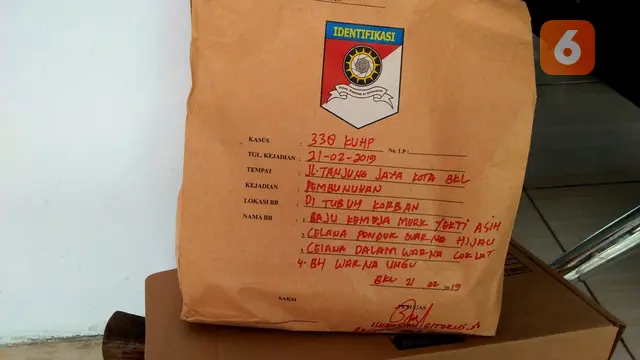 6
IDENTIFIKASI
KASUS : 338 KUHP No. LP :
TGL. KEJADIAN : 21-02-2019
TEMPAT : JL. TANJUNG JAYA KOTA BKL
KEJADIAN : PEMBUNUHAN
LOKASI BB : DI TUBUH KORBAN
NAMA BB : 1. BAJU KEMEJA MERK YEKTI ASIH
2. CELANA PENDEK WARNA HIJAU
3. CELANA DALAM WARNA COKLAT
4. BH WARNA UNGU
BKL 21 02 2019
SAKSI